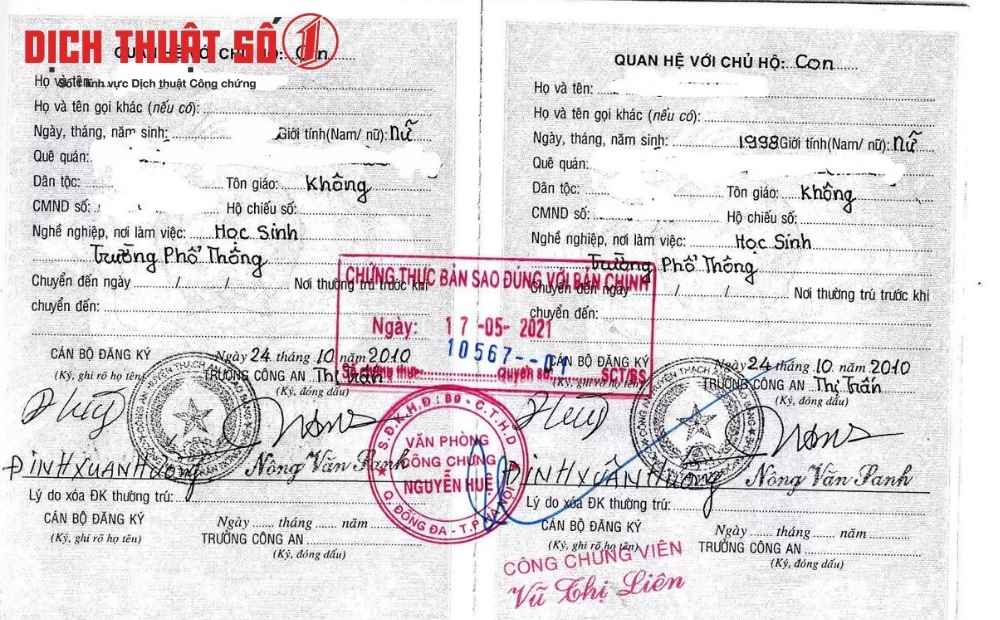 DỊCH THUẬT SỐ 1
Số 1 lĩnh vực Dịch thuật Công chứng
QUAN HỆ VỚI CHỦ HỘ: Con
Họ và tên:
Họ và tên gọi khác (nếu có):
Ngày, tháng, năm sinh: Giới tính(Nam/ nữ): Nữ
Quê quán:
Dân tộc: Tôn giáo: Không
CMND số: Hộ chiếu số:
Nghề nghiệp, nơi làm việc: Học Sinh
Trường Phổ Thông
Chuyển đến ngày / / Nơi thường trú trước khi
chuyển đến:
CÁN BỘ ĐĂNG KÝ
(Ký, ghi rõ họ tên)
Ngày 24 tháng 10 năm 2010
TRƯỞNG CÔNG AN Thị Trấn
(Ký, đóng dấu)
ĐINH XUÂN HƯƠNG
Nông Văn Panh
Lý do xóa ĐK thường trú:
CÁN BỘ ĐĂNG KÝ
(Ký, ghi rõ họ tên)
Ngày ...... tháng ...... năm ......
TRƯỞNG CÔNG AN
(Ký, đóng dấu)
QUAN HỆ VỚI CHỦ HỘ: Con
Họ và tên:
Họ và tên gọi khác (nếu có):
Ngày, tháng, năm sinh: 1998 Giới tính(Nam/ nữ): Nữ
Quê quán:
Dân tộc: Tôn giáo: Không
CMND số: Hộ chiếu số:
Nghề nghiệp, nơi làm việc: Học Sinh
Trường Phổ Thông
Chuyển đến ngày / / Nơi thường trú trước khi
chuyển đến:
CÁN BỘ ĐĂNG KÝ
(Ký, ghi rõ họ tên)
Ngày 24 tháng 10 năm 2010
TRƯỞNG CÔNG AN Thị Trấn
(Ký, đóng dấu)
ĐINH XUÂN HƯƠNG
Nông Văn Panh
Lý do xóa ĐK thường trú:
CÁN BỘ ĐĂNG KÝ
(Ký, ghi rõ họ tên)
Ngày ...... tháng ...... năm ......
TRƯỞNG CÔNG AN
(Ký, đóng dấu)
CHỨNG THỰC BẢN SAO ĐÚNG VỚI BẢN CHÍNH
Ngày: 17-05-2021
10567--01
Số chứng thực Quyển số: SCT/BS
S.Đ.K.H.Đ: 89 - C.T.H.D
VĂN PHÒNG
CÔNG CHỨNG
NGUYỄN HUỆ
Q. ĐỐNG ĐA - T.P HÀ NỘI
CÔNG CHỨNG VIÊN
Vũ Thị Liên